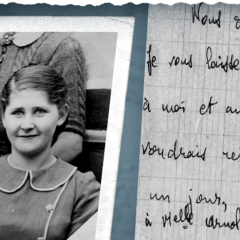 Nous
Je vous laisse
à moi et au
voudrais re
un jour,
à Melle Arnol